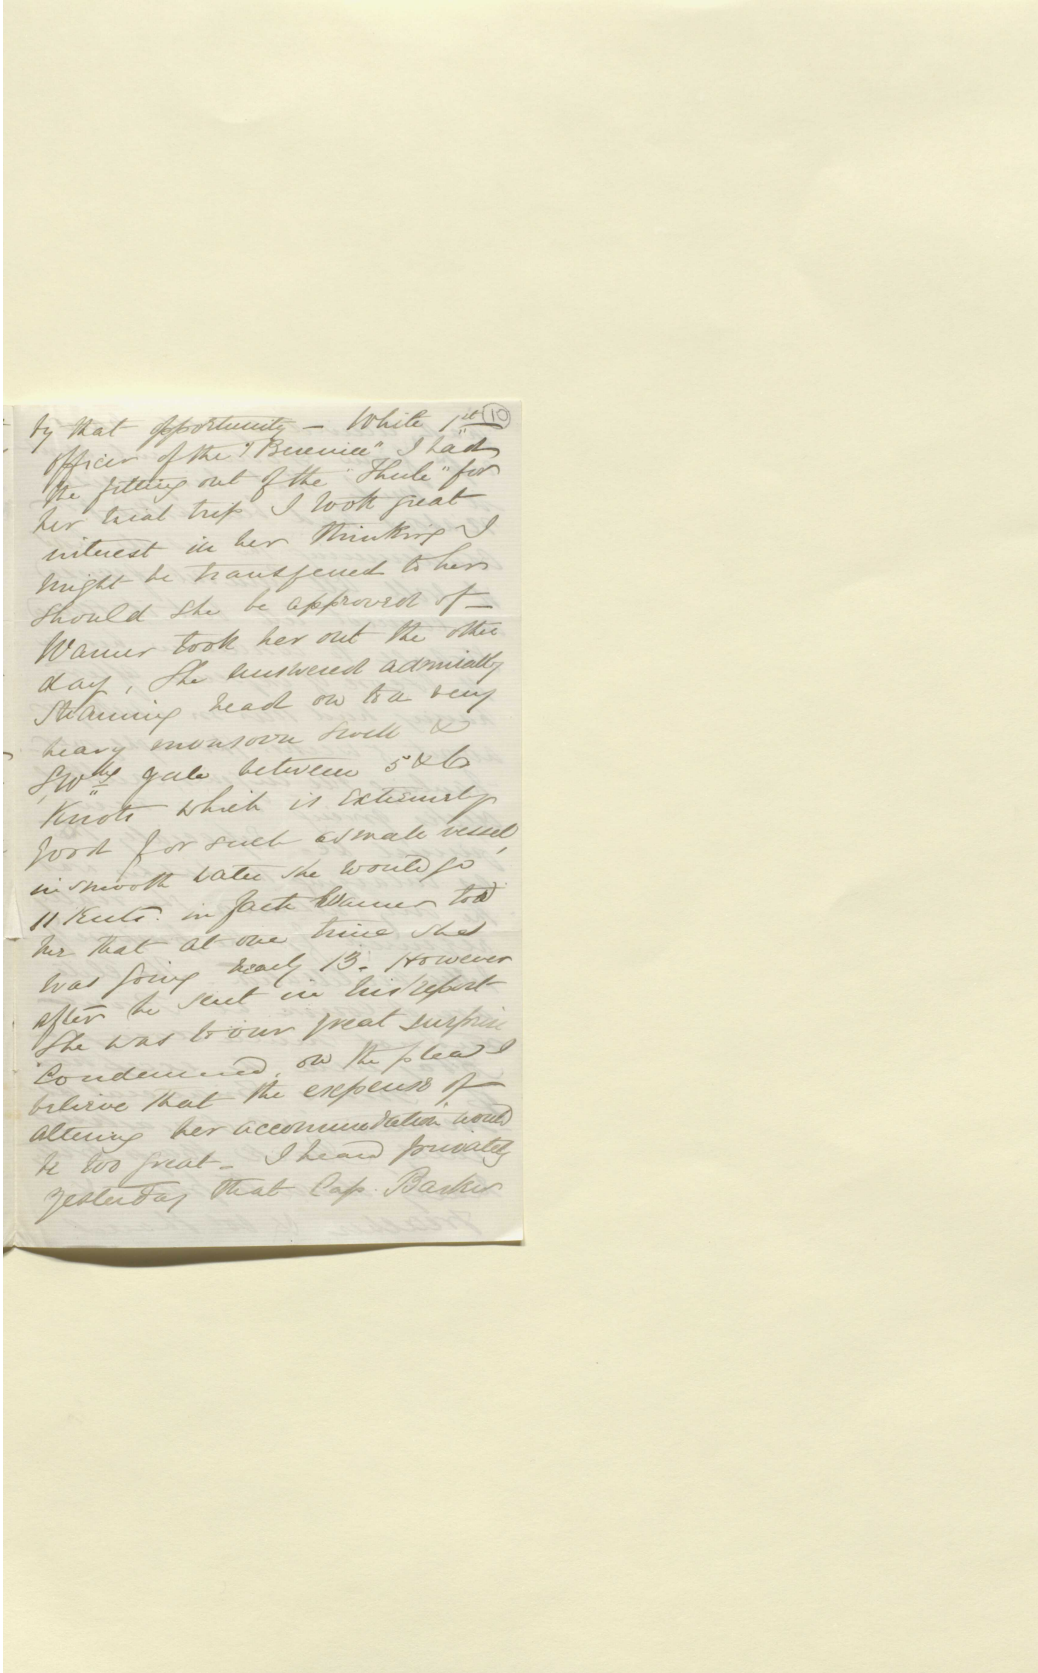 by that opportunity — While 1st (10)
officer of the "Berenice" I had
the fitting out of the "Thule" for
her trial trip I took great
interest in her thinking I
might be transfened to her
should she be approved of —
Warner took her out the other
day, She answered admirably
Steaming head on to a very
heavy monsoon swell &
SWly gale between 5 & 6
Knots which is extremely
good for such a small vessel,
in smooth water she would go
11 Knts. in fact Warner told
me that at one time she
was going nearly 13. However
after he sent in his report
She was to our great surprise
Condemned, on the plea I
believe that the expense of
altering her accommodation would
be too great — I heard privately
yesterday that Cap. Barker